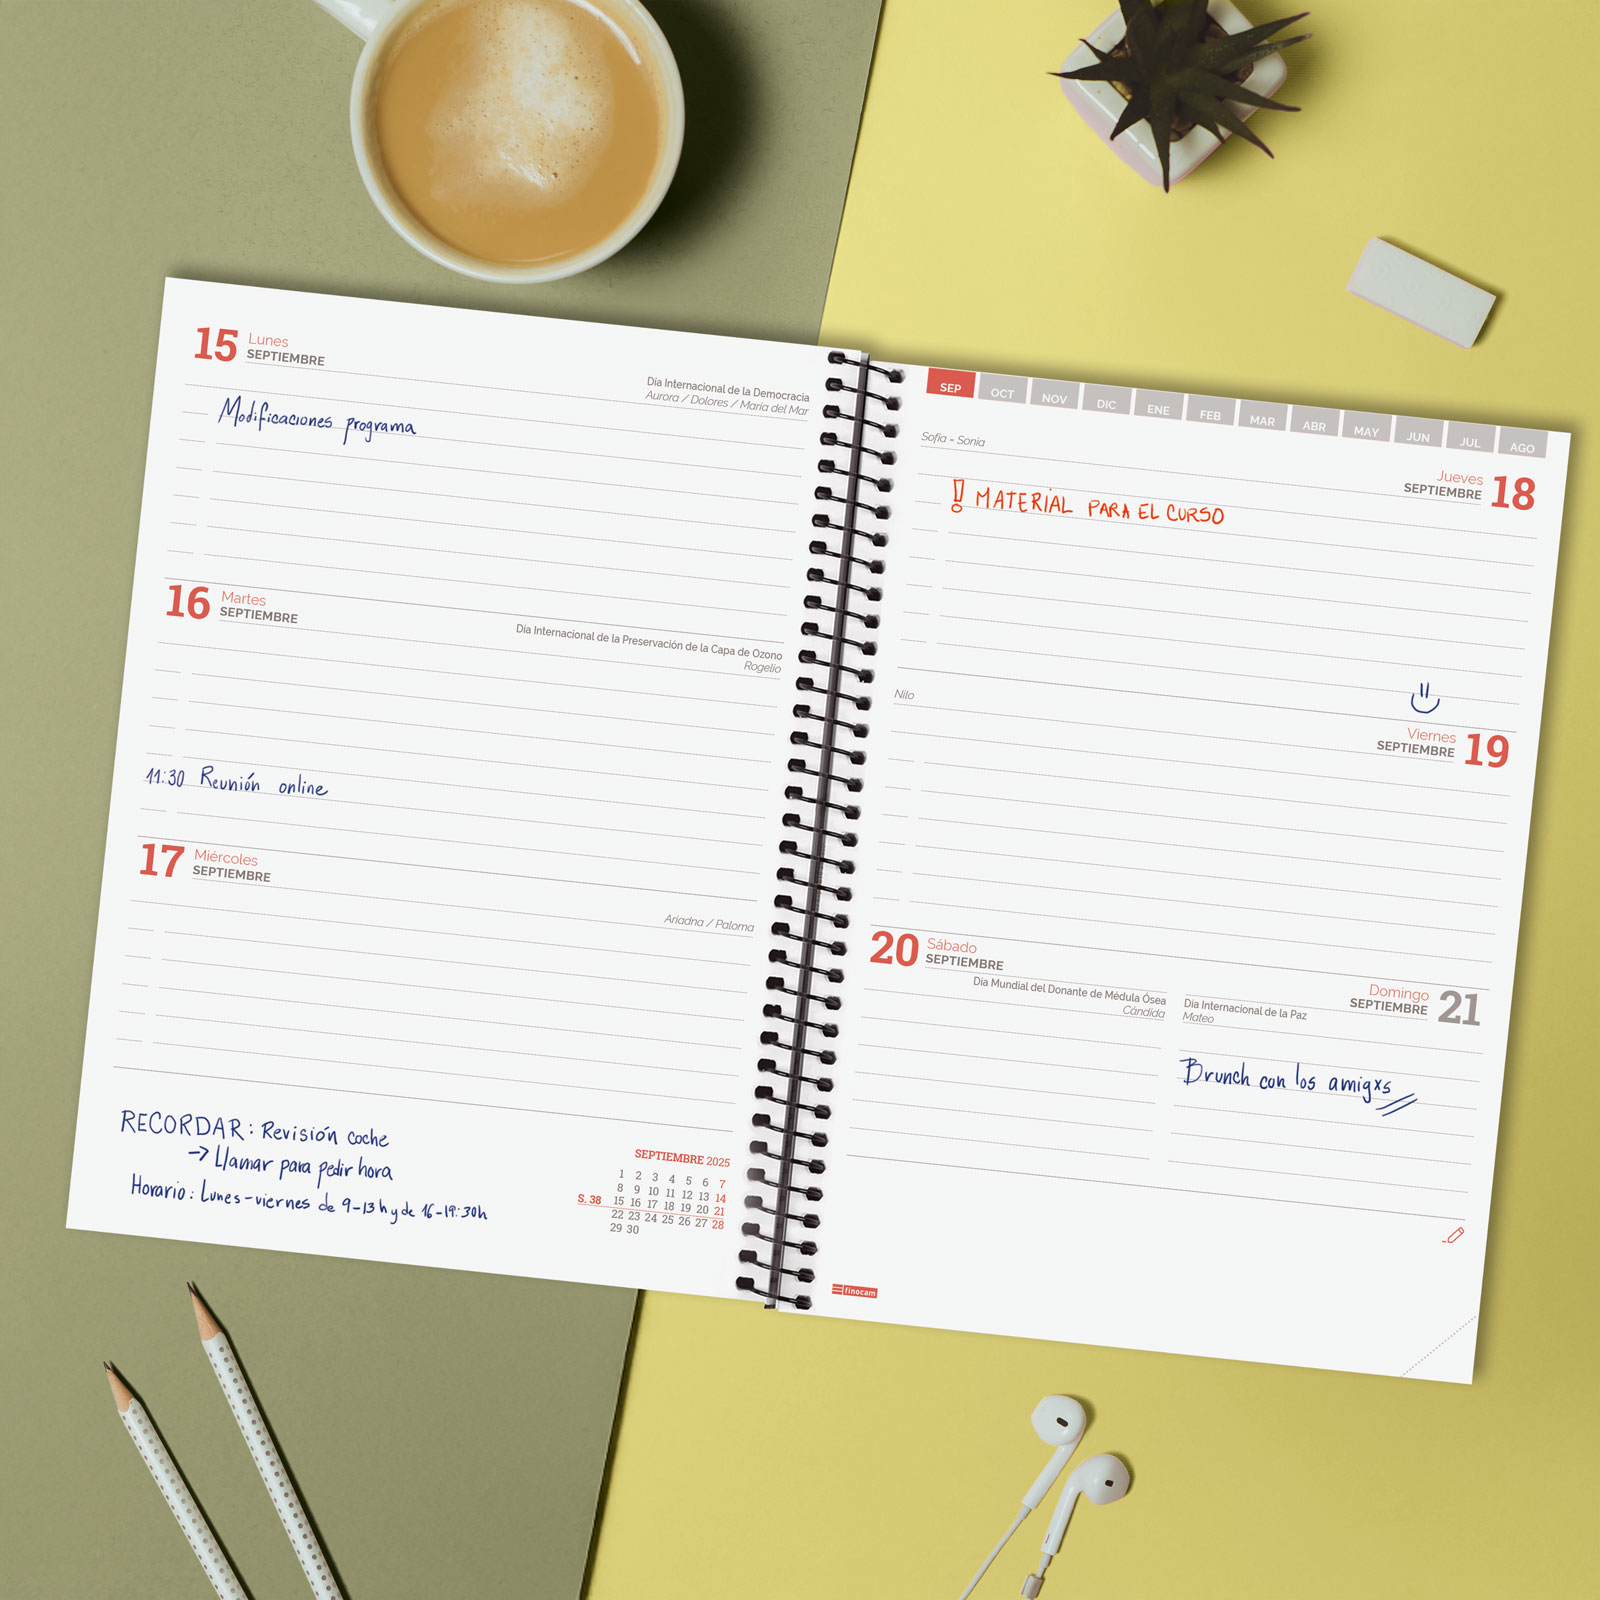 15 Lunes
SEPTIEMBRE
Día Internacional de la Democracia
Aurora / Dolores / María del Mar
Modificaciones programa
16 Martes
SEPTIEMBRE
Día Internacional de la Preservación de la Capa de Ozono
Rogelio
11:30 Reunión online
17 Miércoles
SEPTIEMBRE
Ariadna / Paloma
RECORDAR: Revisión coche
→ Llamar para pedir hora
Horario: Lunes-viernes de 9-13h y de 16-19:30h
SEPTIEMBRE 2025
1 2 3 4 5 6 7
8 9 10 11 12 13 14
S. 38 15 16 17 18 19 20 21
22 23 24 25 26 27 28
29 30
SEP OCT NOV DIC ENE FEB MAR ABR MAY JUN JUL AGO
Sofía - Sonia
Jueves 18
SEPTIEMBRE
! MATERIAL PARA EL CURSO
Nilo
Viernes 19
SEPTIEMBRE
20 Sábado
SEPTIEMBRE
Día Mundial del Donante de Médula Ósea
Cándida
Domingo 21
SEPTIEMBRE
Día Internacional de la Paz
Mateo
Brunch con los amigxs
finocam